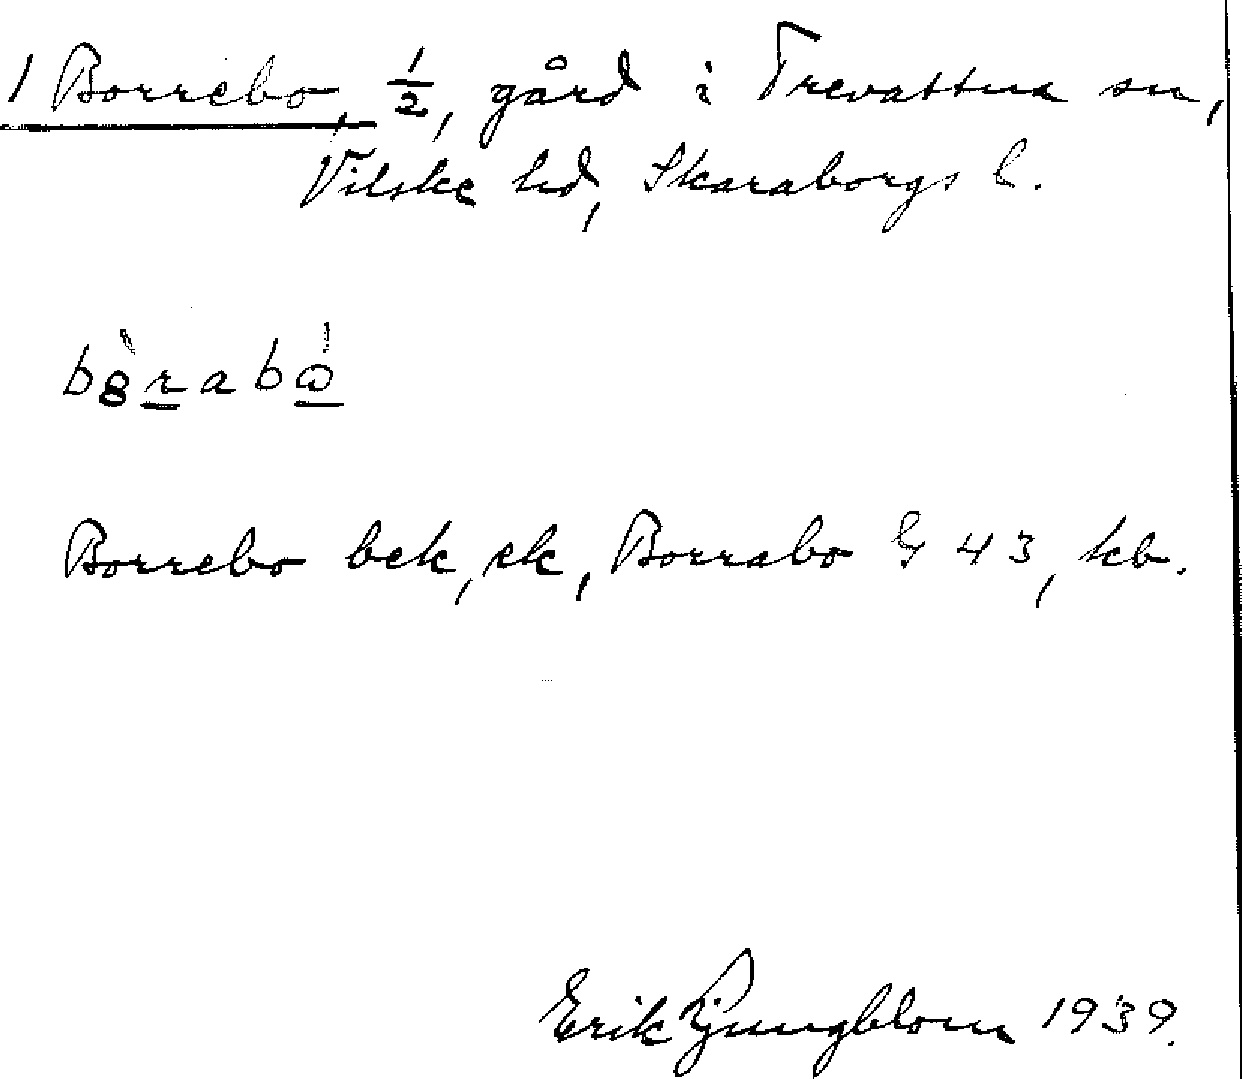 1 Borrebo, 1/2, gård i Trevattna sn,
Vilske hd, Skaraborgs l.
Borrebo bek, ek, Borrabo G 43, kb.
Erik Ljungblom 1939.